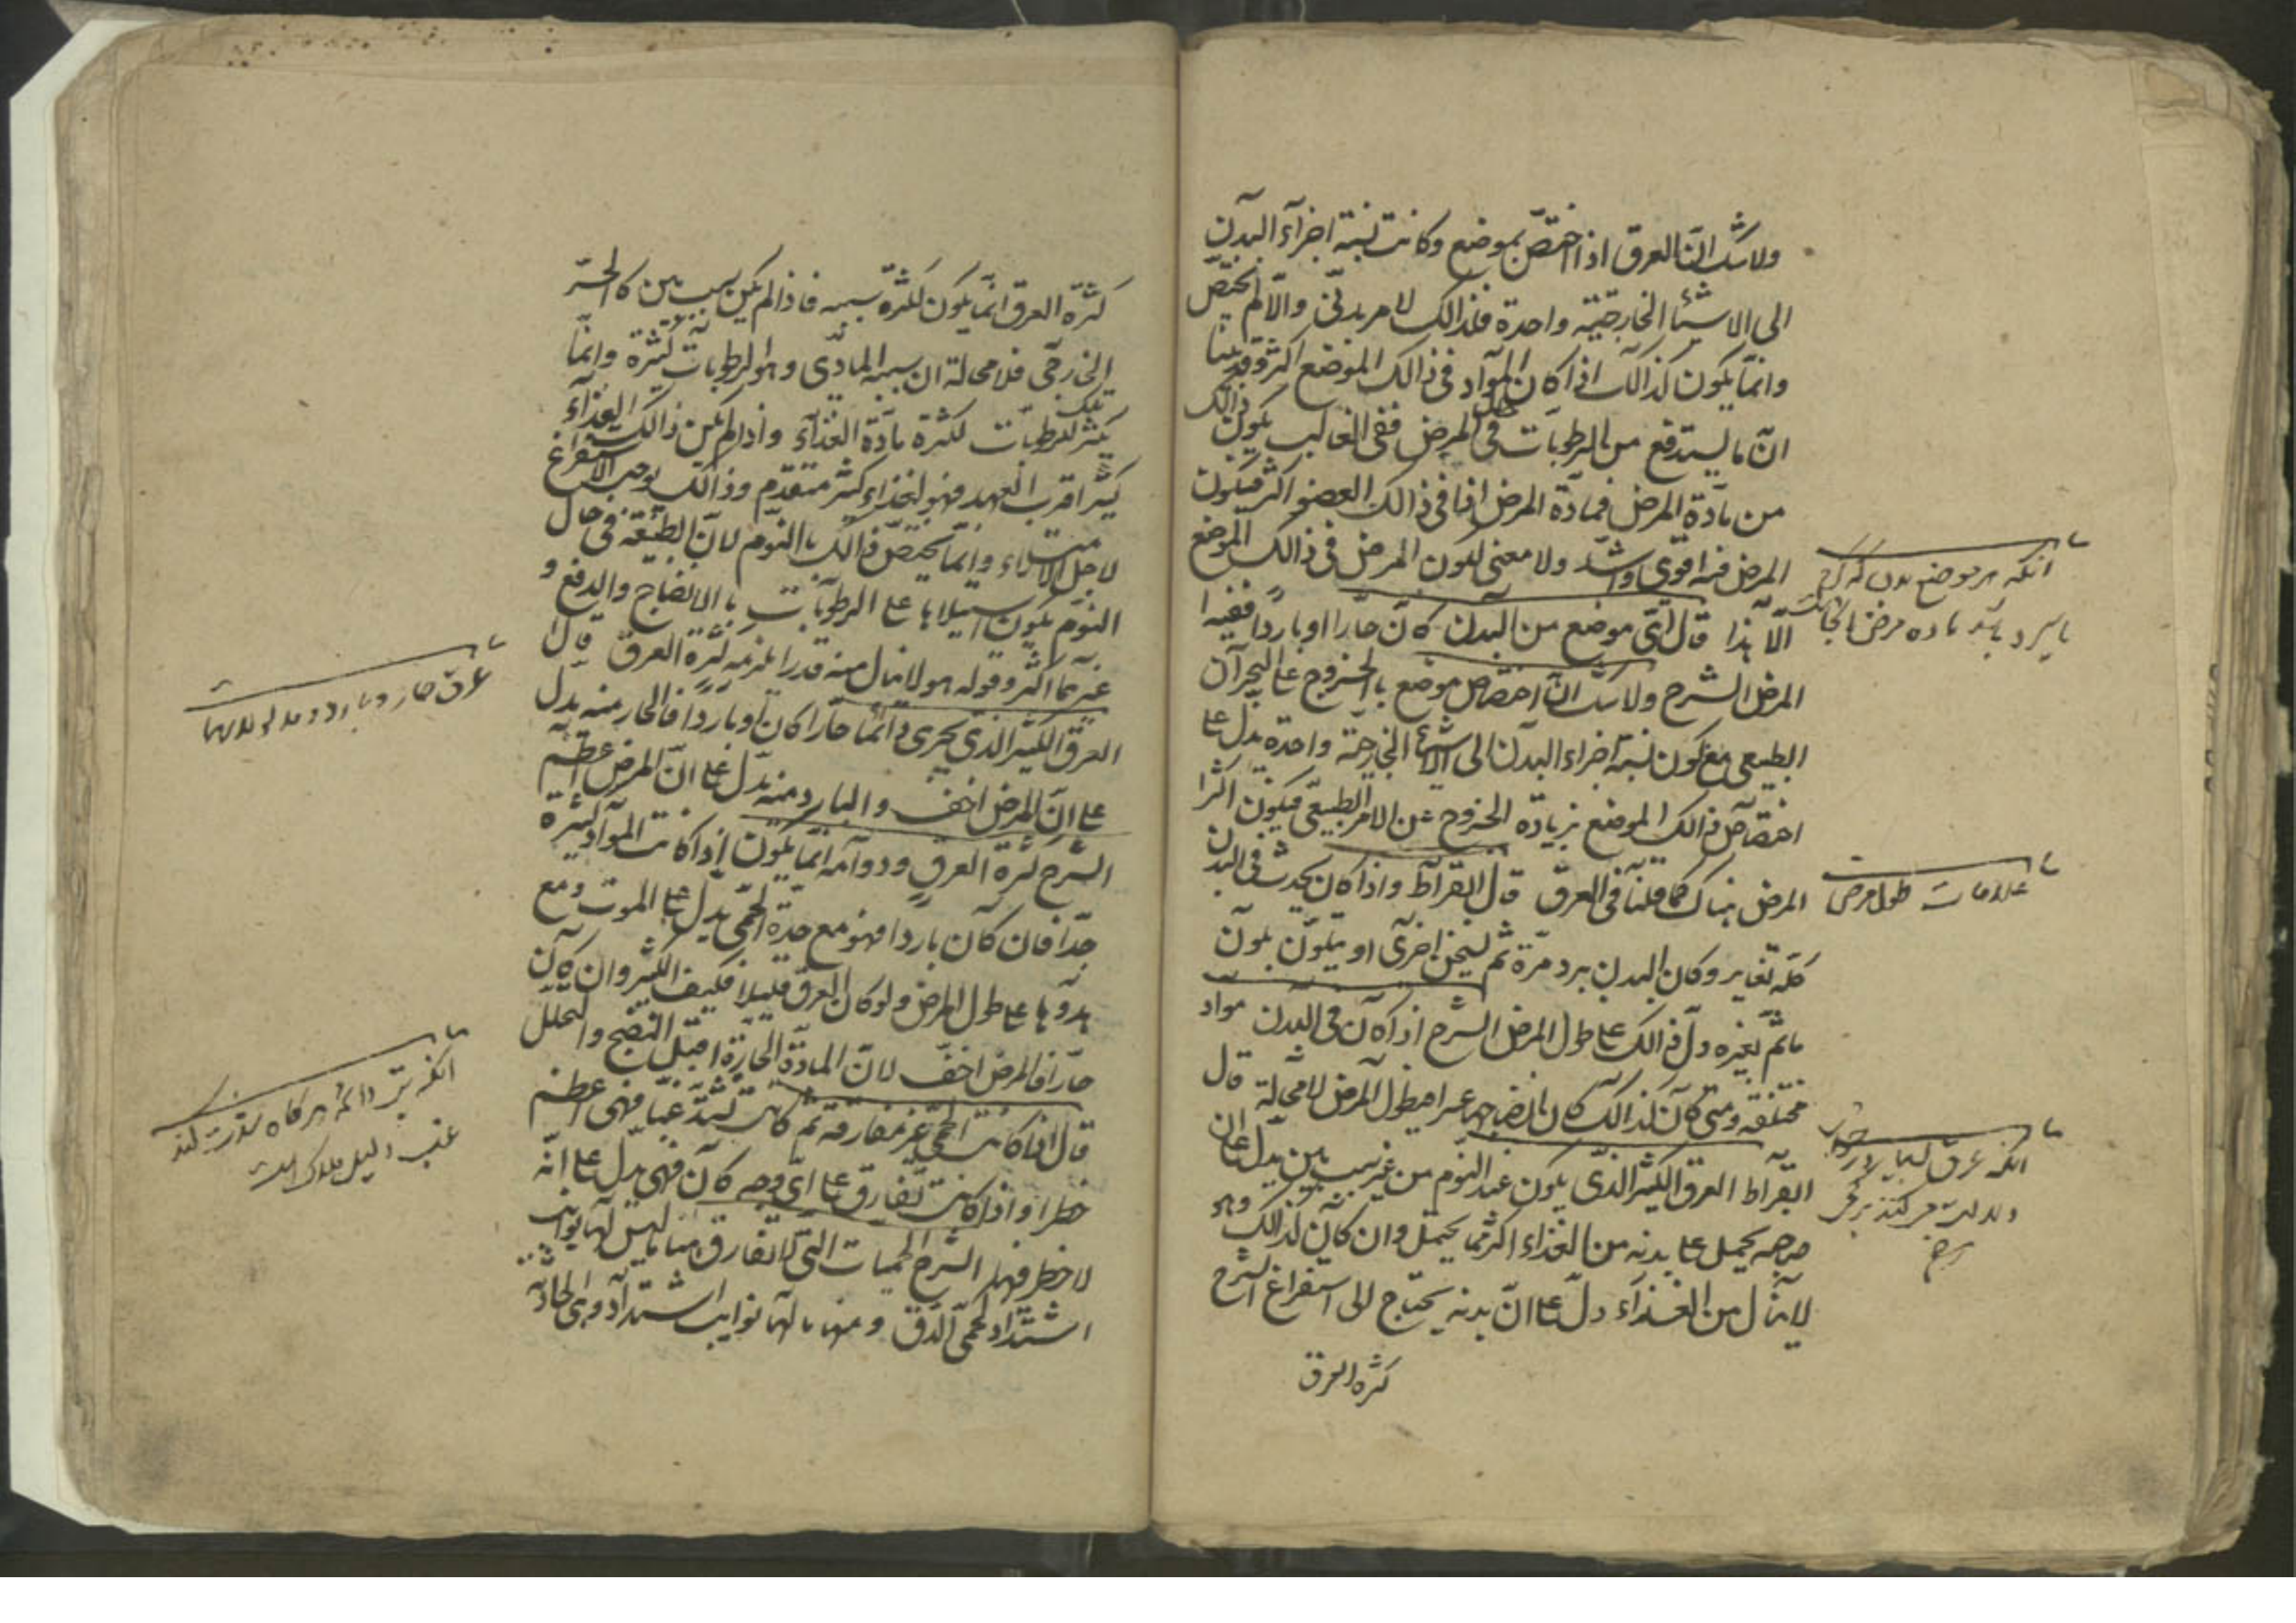 ولا شك ان العرق اذا اختص بموضع وكانت نسبة اجزآء البدن
الى الاشيا الخارجية واحدة فلذالك لامر بدنى والا لم يختص
وانما يكون كذالك اذا كان المواد فى ذالك الموضع اكثر وقد بينا
ان ما يستدفع من الرطوبات فى حال المرض ففى الغالب يكون ذالك
من مادة المرض فمادة المرض اذا فى ذالك العضو اكثر فيكون
المرض فيه اقوى واشد ولا معنى لكون المرض فى ذالك الموضع
الا هذا قال اى موضع من البدن كان حارا او باردا ففيه
المرض الشرح ولا شك ان اختصاص موضع بالخروج عن البحران
الطبيعى مع كون نسبة اجزاء البدن الى الاشيا الخارجة واحدة يدل على
اختصاص ذالك الموضع بزيادة الخروج عن الامر الطبيعى فيكون اكثر
المرض هناك كما قلنا فى العرق قال ابقراط واذا كان يحدث فى البدن
كله تغاير وكان البدن يبرد مرة ثم يسخن اخرى او يتلون بلون
ما ثم بغيره دل ذالك على طول المرض الشرح اذا كان فى البدن مواد
مختلفة ومتى كان كذالك كان انضاجها عسرا فيطول المرض لا محالة قال
ابقراط العرق الكثير الذى يكون عند النوم من غير سبب بين يدل على ان
صاحبه يحمل على بدنه من الغذاء اكثر مما يحتمل وان كان كذالك وهو
لا ينال من الغذاء دل على ان بدنه يحتاج الى استفراغ الشرح
كثرة العرق
انكه هر موضع بدن كه گرم
يا سرد باشد ماده مرض انجاست
علامات طول مرض
انكه عرق بسيار در خواب
كثرة العرق انما يكون لكثرة سببه فاذا لم يكن بسبب بين كالحر
الخارجى فلا محالة ان سببه المادى وهو الرطوبات كثيرة وانما
يكثر تلك الرطوبات لكثرة مادة الغذاء واذا لم يكن ذالك الغذاء
كثيرا قرب العهد فهو لغذاء كثير متقدم وذالك يوجب الاستفراغ
لاجل الامتلاء وانما يختص ذالك بالنوم لان الطبيعة فى حال
النوم يكون استيلاؤها على الرطوبات بالانضاج والدفع و
غيرهما اكثر وقوله هو لا ينال منه قدرا يلزمه كثرة العرق قال
العرق الكثير الذى يجرى دائما حارا كان او باردا فالحار منه يدل
على ان المرض اخف والبارد منه يدل على ان المرض اعظم
الشرح كثرة العرق ودوامه انما يكون اذا كانت المواد كثيرة
جدا فان كان باردا فهو مع حدة الحمى يدل على الموت ومع
هدوها على طول المرض ولو كان العرق قليلا فكيف الكثير وان كان
حارا فالمرض اخف لان المادة الحارة اقبل للنضج والتحلل
قال اذا كانت الحمى غير مفارقة ثم كانت تشتد غبا فهى اعظم
خطرا واذا كانت تفارق على اى وجه كان فهى يدل على انه
لا خطر فيها الشرح الحميات التى لا تفارق منها ما ليس لها نوايب
اشتداد كحمى الدق ومنها ما لها نوايب اشتداد وهى الحادة
عرق حار و بارد
انكه تب دائمه هر گاه شدت كند
غب دليل هلاك است